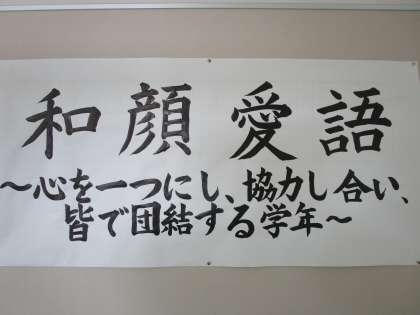 和顔愛語
～心を一つにし、協力し合い、
皆で団結する学年～